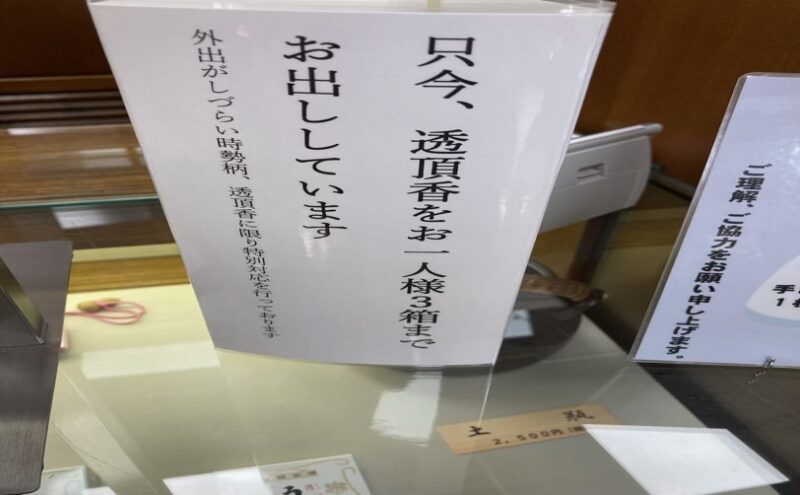 只今、透頂香をお一人様3箱まで
お出ししています
外出がしづらい時勢柄、透頂香に限り特別対応を行っております
ご理解、ご協力をお願い申し上げます。
土瓶
2,500円